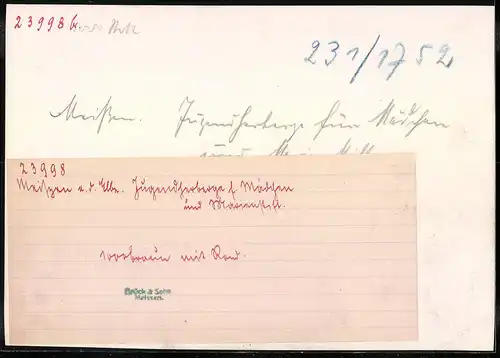 23998
231/1752
Meißen. Jugendherberge für Mädchen
und
23998
Meißen a. d. Elbe. Jugendherberge f. Mädchen
und Marienstift.
rotbraun mit Rand.
Brück & Sohn
Meissen.